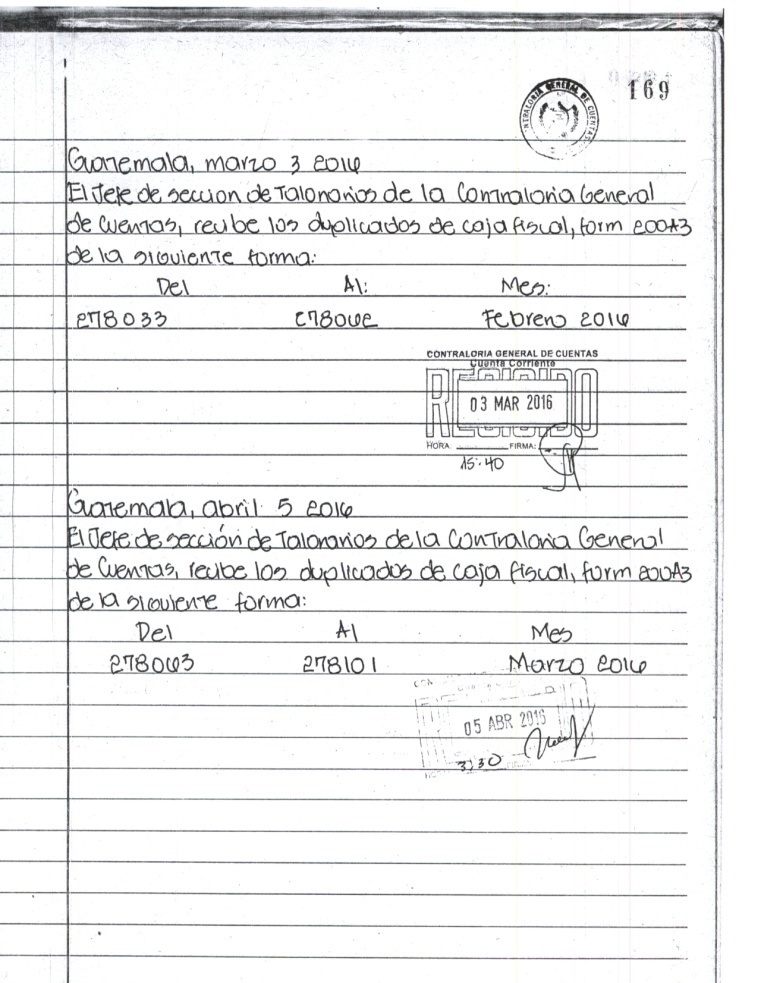 169
CONTRALORIA GENERAL DE CUENTAS
Guatemala, marzo 3 2016
El Jefe de seccion de Talonarios de la Contraloria General
de Cuentas, recibe los duplicados de caja fiscal, form 200A3
de la siguiente forma:
Del Al: Mes:
278033 278062 Febrero 2016
CONTRALORIA GENERAL DE CUENTAS
Cuenta Corriente
RECIBIDO
03 MAR 2016
HORA FIRMA:
15:40
Guatemala, abril 5 2016
El Jefe de sección de Talonarios de la Contraloria General
de Cuentas, recibe los duplicados de caja fiscal, form 200A3
de la siguiente forma:
Del Al Mes
278063 278101 Marzo 2016
05 ABR 2016
3:30